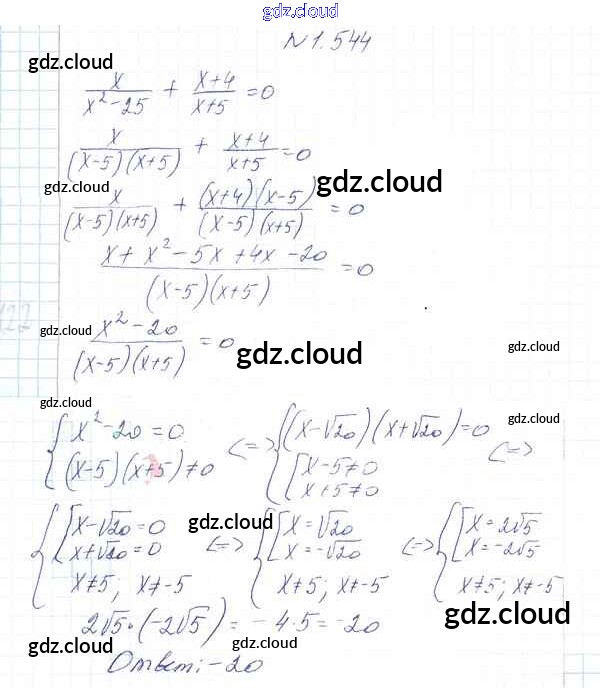 gdz.cloud
N 1.544
gdz.cloud
x/(x²-25) + (x+4)/(x+5) = 0
x/((x-5)(x+5)) + (x+4)/(x+5) = 0
gdz.cloud
x/((x-5)(x+5)) + ((x+4)(x-5))/((x-5)(x+5)) = 0
(x + x² - 5x + 4x - 20)/((x-5)(x+5)) = 0
gdz.cloud
(x²-20)/((x-5)(x+5)) = 0
gdz.cloud gdz.cloud
gdz.cloud gdz.cloud
{ x²-20 = 0 ; (x-5)(x+5) ≠ 0 <=> { (x-√20)(x+√20) = 0 ; [ x-5≠0 ; x+5≠0 <=>
{ [ x-√20 = 0 ; x+√20 = 0 ; x≠5; x≠-5 <=> { [ x = √20 ; x = -√20 ; x≠5; x≠-5 <=> { [ x = 2√5 ; x = -2√5 ; x≠5; x≠-5
gdz.cloud
gdz.cloud
2√5·(-2√5) = -4·5 = -20
gdz.cloud gdz.cloud
Ответ: -20